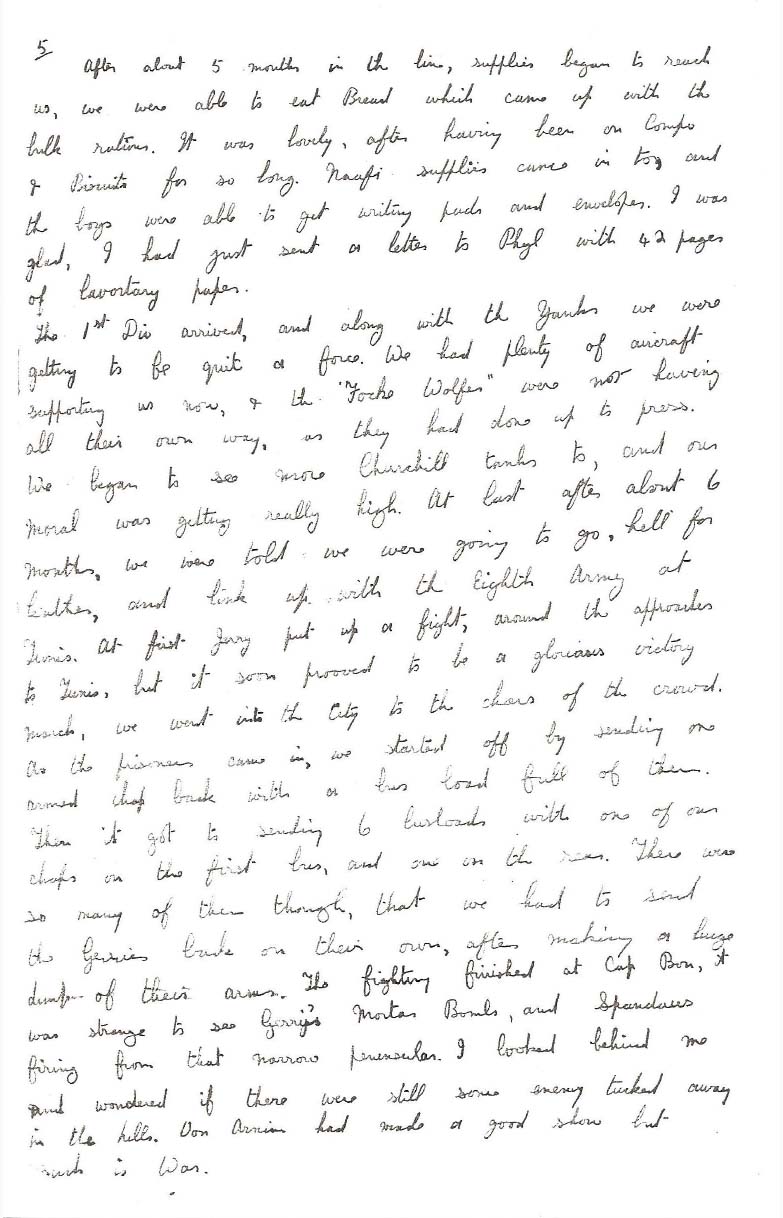 5
After about 5 months in the line, supplies began to reach
us, we were able to eat Bread which came up with the
bulk rations. It was lovely, after having been on Compo
& Biscuits for so long. Naafi supplies came in too, and
the boys were able to get writing pads and envelopes. I was
glad, I had just sent a letter to Phyl with 42 pages
of lavortary paper.
The 1st Div arrived, and along with the Yanks we were
getting to be quit a force. We had plenty of aircraft
supporting us now, & the "Focke Wolfes" were not having
all their own way, as they had done up to press.
We began to see more Churchill tanks to, and our
moral was getting really high. At last after about 6
months, we were told we were going to go, hell for
leather, and link up with the Eighth Army at
Tunis. At first Jerry put up a fight, around the approaches
to Tunis, but it soon prooved to be a glorious victory
march, we went into the City to the chears of the crowd.
As the prisoners came in, we started off by sending one
armed chap back with a bus load full of them.
Then it got to sending 6 busloads with one of our
chaps on the first bus, and one in the rear. There were
so many of them though, that we had to send
the Gerries back on their own, after making a huge
dump of their arms. The fighting finished at Cap Bon, it
was strange to see Gerry's Mortar Bombs, and Spandaus
firing from that narrow penensular. I looked behind me
and wondered if there were still some enemy tucked away
in the hills. Von Arnim had made a good show but
such is War.